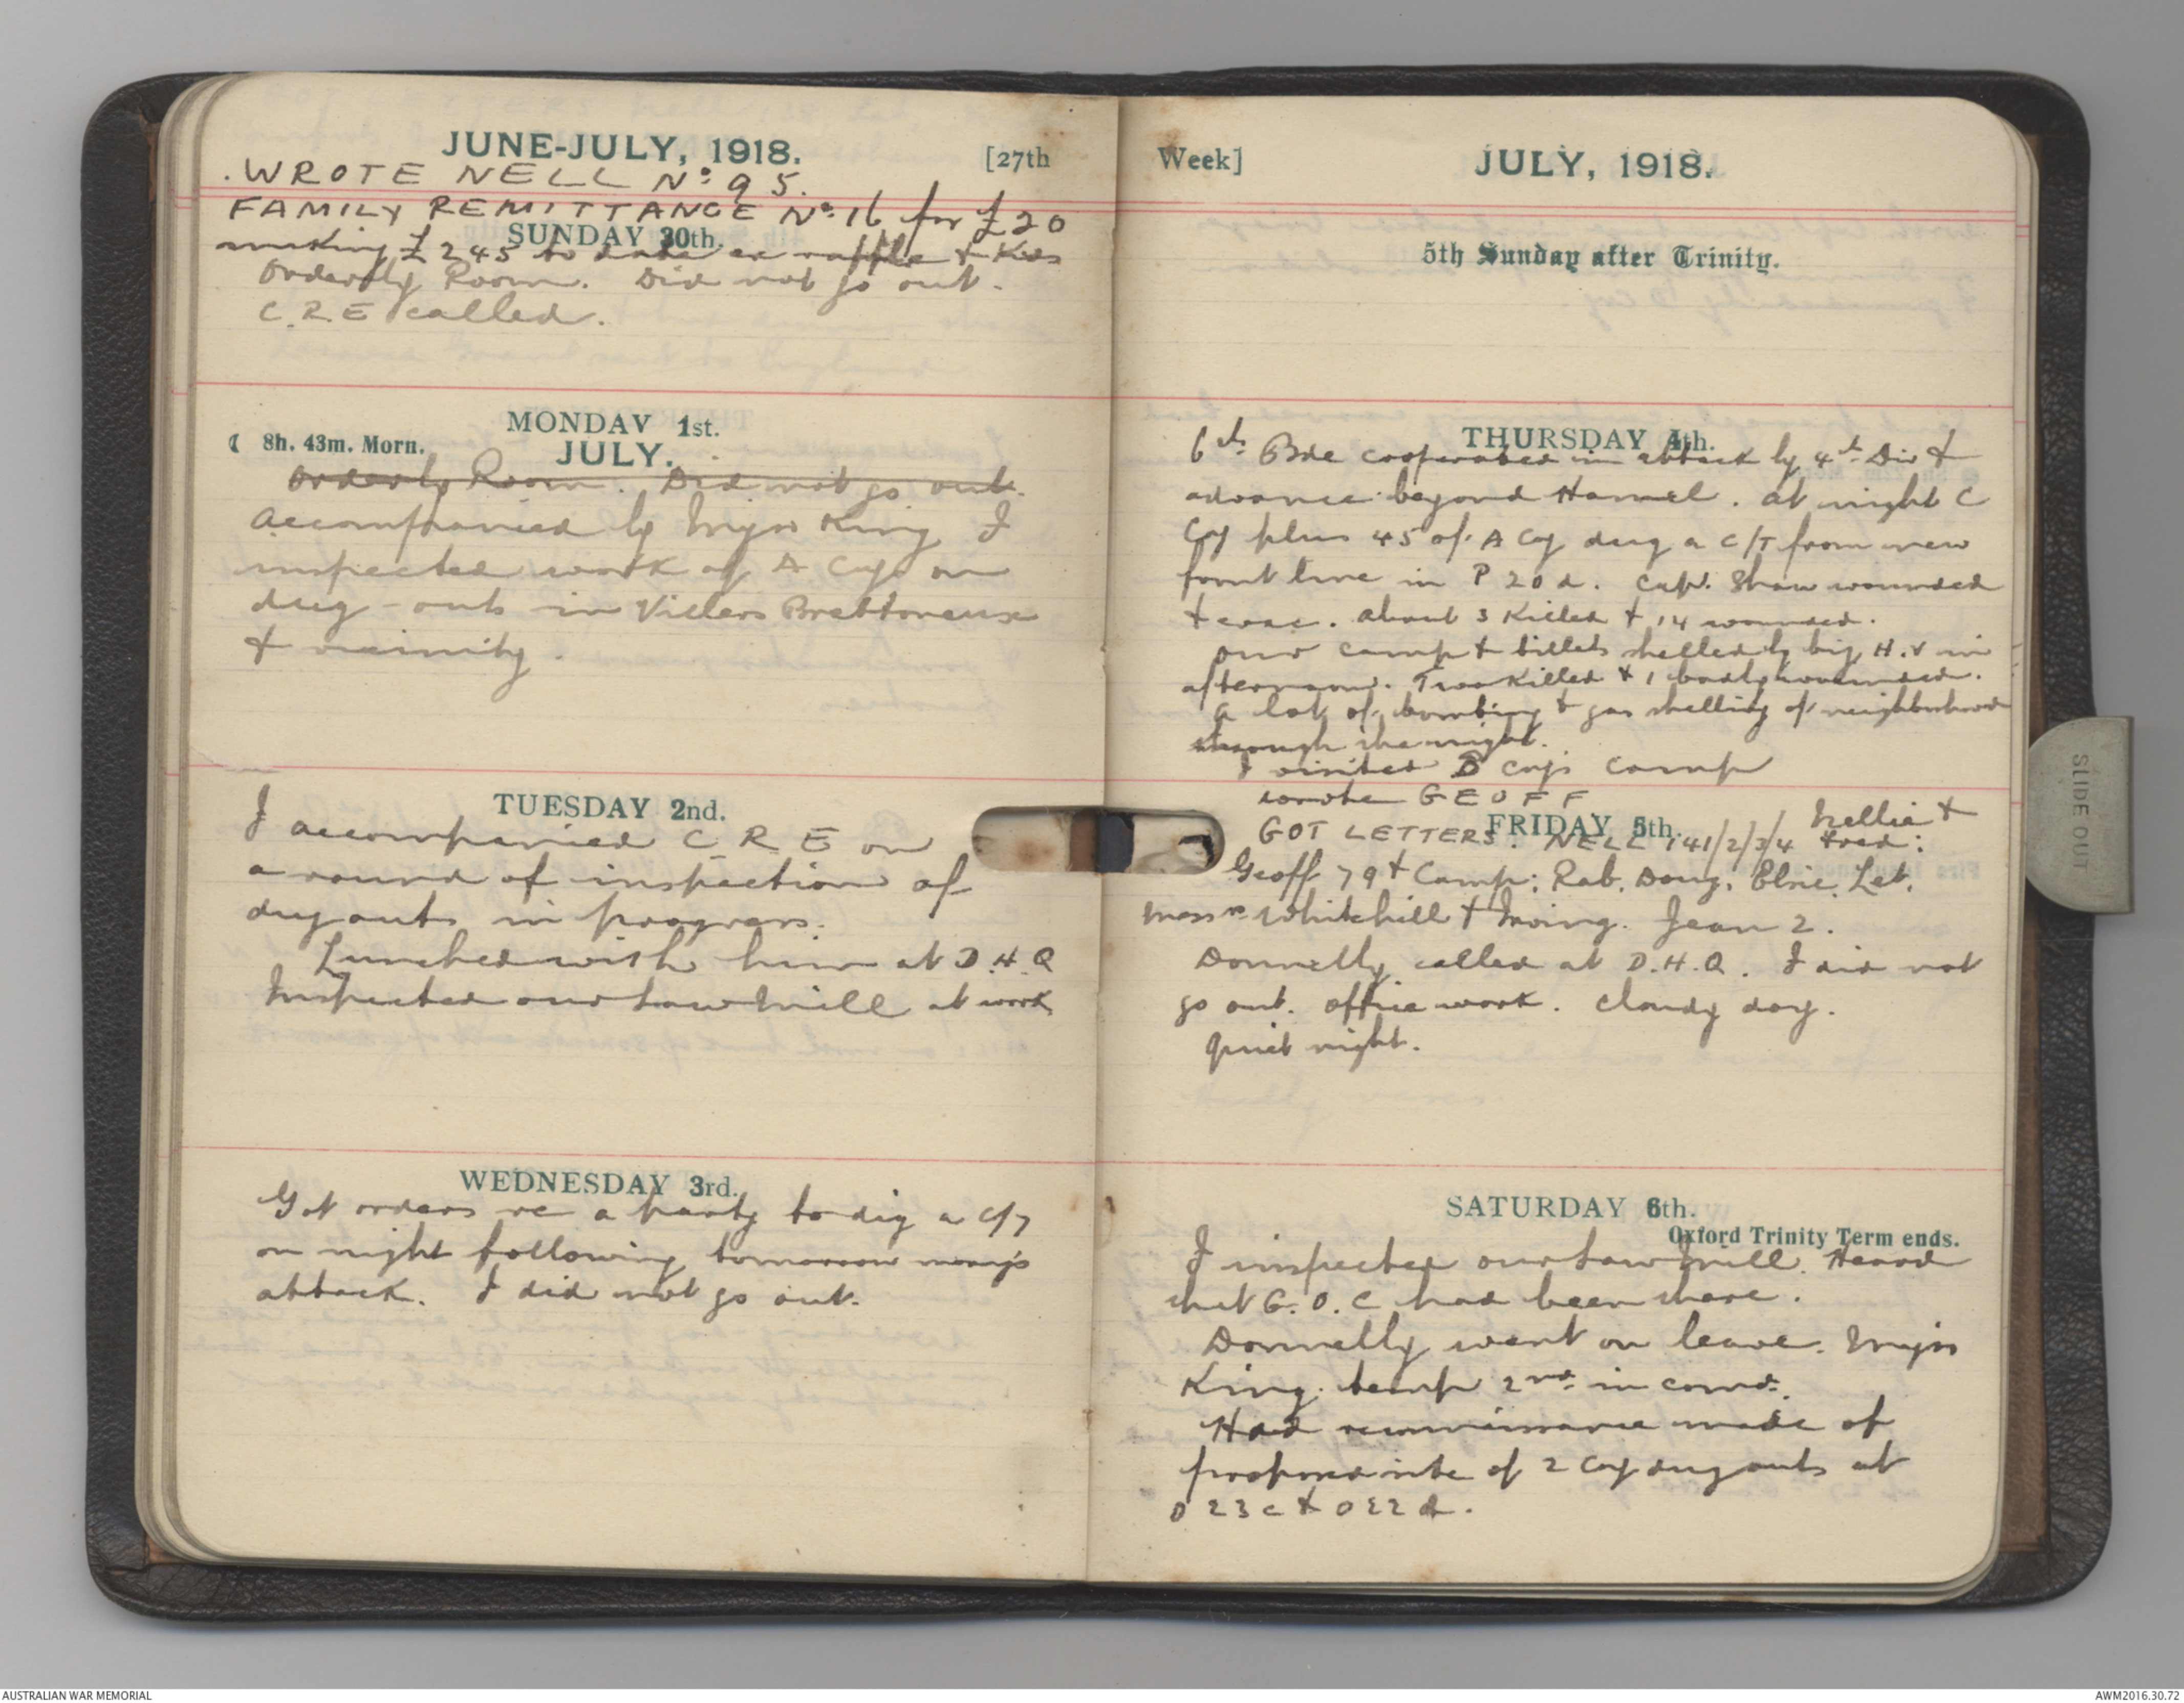 JUNE-JULY, 1918.
[27th
WROTE NELL No. 95.
FAMILY REMITTANCE No. 16 for £20
SUNDAY 30th.
making £245 to date ex raffle &
Orderly Room. Did not go out.
C.R.E called.
MONDAY 1st.
8h. 43m. Morn.
JULY.
Orderly Room. Did not go out.
Accompanied by Major King I
inspected work of A Coy on
dug-outs in Villers Brettoneux
& vicinity.
TUESDAY 2nd.
I accompanied C R E on
a round of inspection of
dugouts in progress.
Lunched with him at D.H.Q
Inspected our Saw Mill at work
WEDNESDAY 3rd.
Got orders re a party to dig a C/T
on night following tomorrow morng's
attack. I did not go out.
Week]
JULY, 1918.
5th Sunday after Trinity.
THURSDAY 4th.
6th Bde cooperated in attack by 4th Div &
advance beyond Hamel. At night C
Coy plus 45 of A Coy dug a C/T from new
front line in P 20 d. Capt. Shaw wounded
& evac. About 3 Killed & 14 wounded.
Our camp & billets shelled by big H.V in
afternoon. Two Killed & 1 badly wounded.
A lot of bombing & gas shelling of neighbourhood
through the night.
I visited B Coy's camp
wrote GEOFF
FRIDAY 5th.
GOT LETTERS. NELL 141/2/3/4 Nellie &
Fred:
Geoff 79 & Camp; Rab. Doug. Elsie. Let.
Messrs Whitehill & Irving. Jean 2.
Donnelly called at D.H.Q. I did not
go out. Office work. Cloudy day.
Quiet night.
SATURDAY 6th.
Oxford Trinity Term ends.
I inspected our Saw Mill. Heard
that G.O.C had been there.
Donnelly went on leave. Major
King temp 2nd in comd.
Had reconnaissance made of
proposed site of 2 Coy dugouts at
O 23 c & O 22 d.
SLIDE OUT
AUSTRALIAN WAR MEMORIAL
AWM2016.30.72